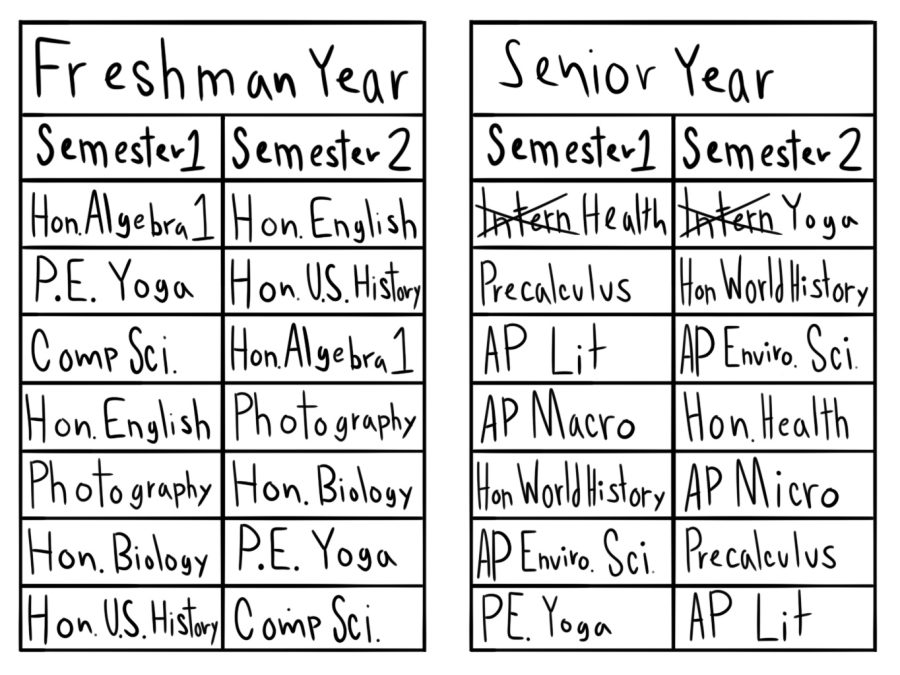 Freshman Year
Semester 1 Semester 2
Hon. Algebra 1 Hon. English
P.E. Yoga Hon. U.S. History
Comp Sci. Hon. Algebra 1
Hon. English Photography
Photography Hon. Biology
Hon. Biology P.E. Yoga
Hon. U.S. History Comp Sci.
Senior Year
Semester 1 Semester 2
Intern Health Intern Yoga
Precalculus Hon World History
AP Lit AP Enviro. Sci.
AP Macro Hon. Health
Hon World History AP Micro
AP Enviro. Sci. Precalculus
PE. Yoga AP Lit